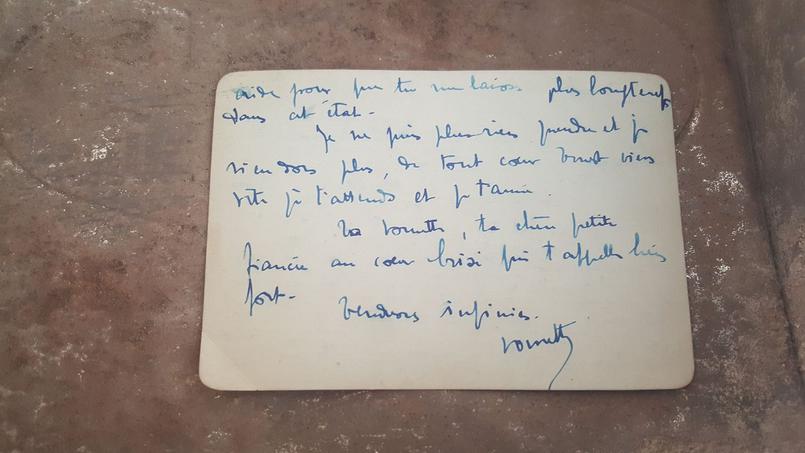 aide pour que tu me laisses plus longtemps
dans cet état -
Je ne puis plus rien prendre et je
n'en dors plus, de tout cœur viens
vite je t'attends et je t'aime.
Ta , ta chère petite
fiancée au cœur brisé qui t'appelle très
fort -
Tendresses infinies.